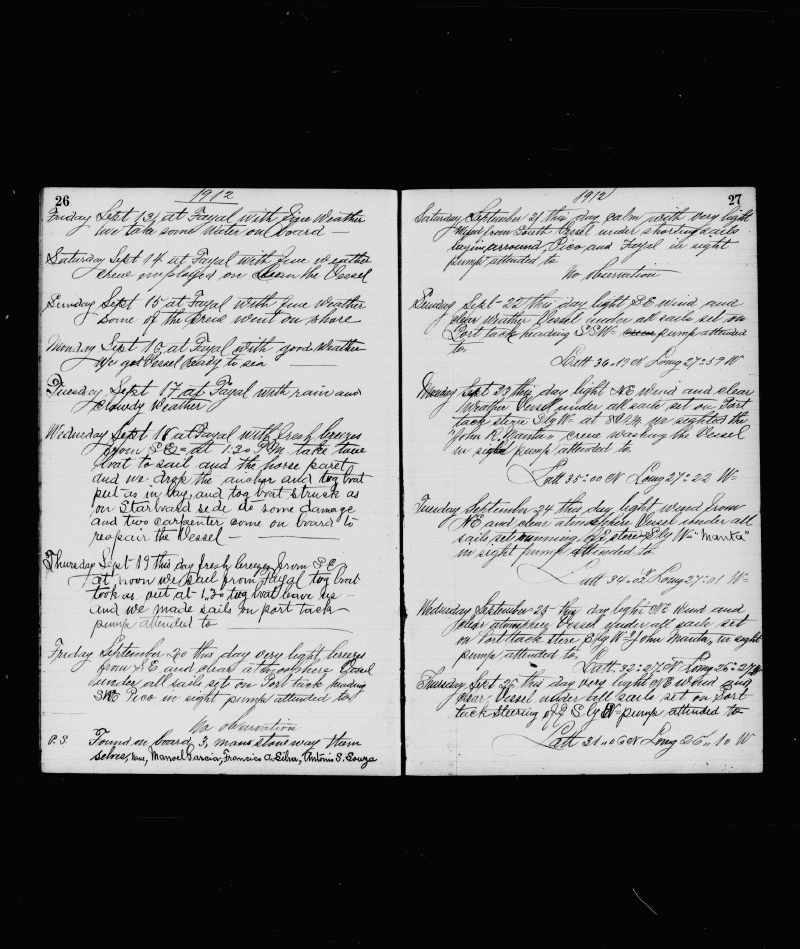 26
1912
Friday Sept 13, at Fayal with fine Weather
we take some Water on board —
Saturday Sept 14 at Fayal with fine weather
crew employed on clean the Vessel
Sunday Sept 15 at Fayal with fine Weather
some of the crew went on shore
Monday Sept 16, at Fayal with good Weather
We got Vessel ready to sea —
Tuesday Sept 17 at Fayal with rain and
cloudy Weather
Wednesday Sept 18 at Fayal with fresh breezes
from S.E. at 1.30 P.M. take
boat to sail and the
and we drop the anchor and tog boat
put as in bay, and tog boat struck as
on Starboard side do some damage
and two carpenter come on board to
reapair the Vessel —
Thursday Sept 19 this day fresh breezes from S.E.
at noon we sail from Fayal tog boat
took as out at 1.30 tog boat leave us
and we made sails on port tack
pump attended to
Friday September 20 this day very light breezes
from S.E and clear Vessel
under all sails set on Port tack heading
Pico in sight pump attended to
No observation
P.S. Found on board 3, mans stoneway them
selves, Manoel Garcia, Francisco A. Silva, António S. Souza
27
1912
Saturday September 21 this day calm with very light
Wind from South Vessel under sails
arround Pico and Fayal in sight
pump attended to
No obervation
Sunday Sept 22 this day light S.E wind and
clear weather Vessel under all sails set on
Port tack heading S.S.W pump attended
to
Latt 36.19 N Long 27.59 W
Monday Sept 23 this day light NE Wind and clear
Weather Vessel under all sails set on Port
tack stere S'ly W at we sighted the
John R. Manta, crew washing the Vessel
in sight pump attended to.
Latt 35:00 N Long 27:22 W
Tuesday September 24 this day light wind from
NE and clear atmosphere Vessel under all
sails set running off stere S'ly W "Manta"
in sight pump attended to
Latt 34.02 N Long 27:01 W
Wednesday September 25 this day light NE Wind and
clear atmosphere Vessel under all sails set
on Port tack stere S'ly W John Manta, in sight
pump attended to
Latt: 32:27 N Long 26:27 W
Thursday Sept 26 this day very light NE Wind and
clear, Vessel under all sails set on Port
tack steering off S'ly W pump attended to
Latt 31.06 N Long 26.10 W